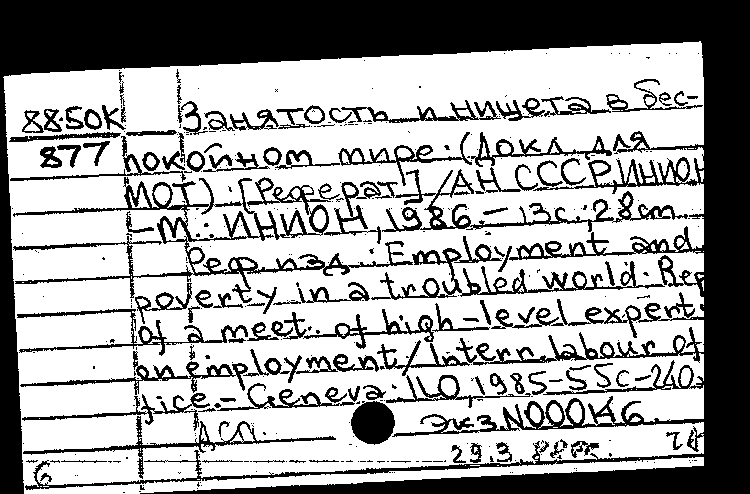 88.50К Занятость и нищета в бес-
877 покойном мире. (Докл. для
МОТ). [Реферат] / АН СССР, ИНИОН
-М.: ИНИОН, 1986. - 13с.; 28cm.
Реф. изд.: Employment and
poverty in a troubled world. Rep
of a meet. of high-level expert.
on employment / Intern. labour of
fice. - Geneva: ILO, 1985-55с-240
ДСП. Экз. N000146.
29.3.88
6